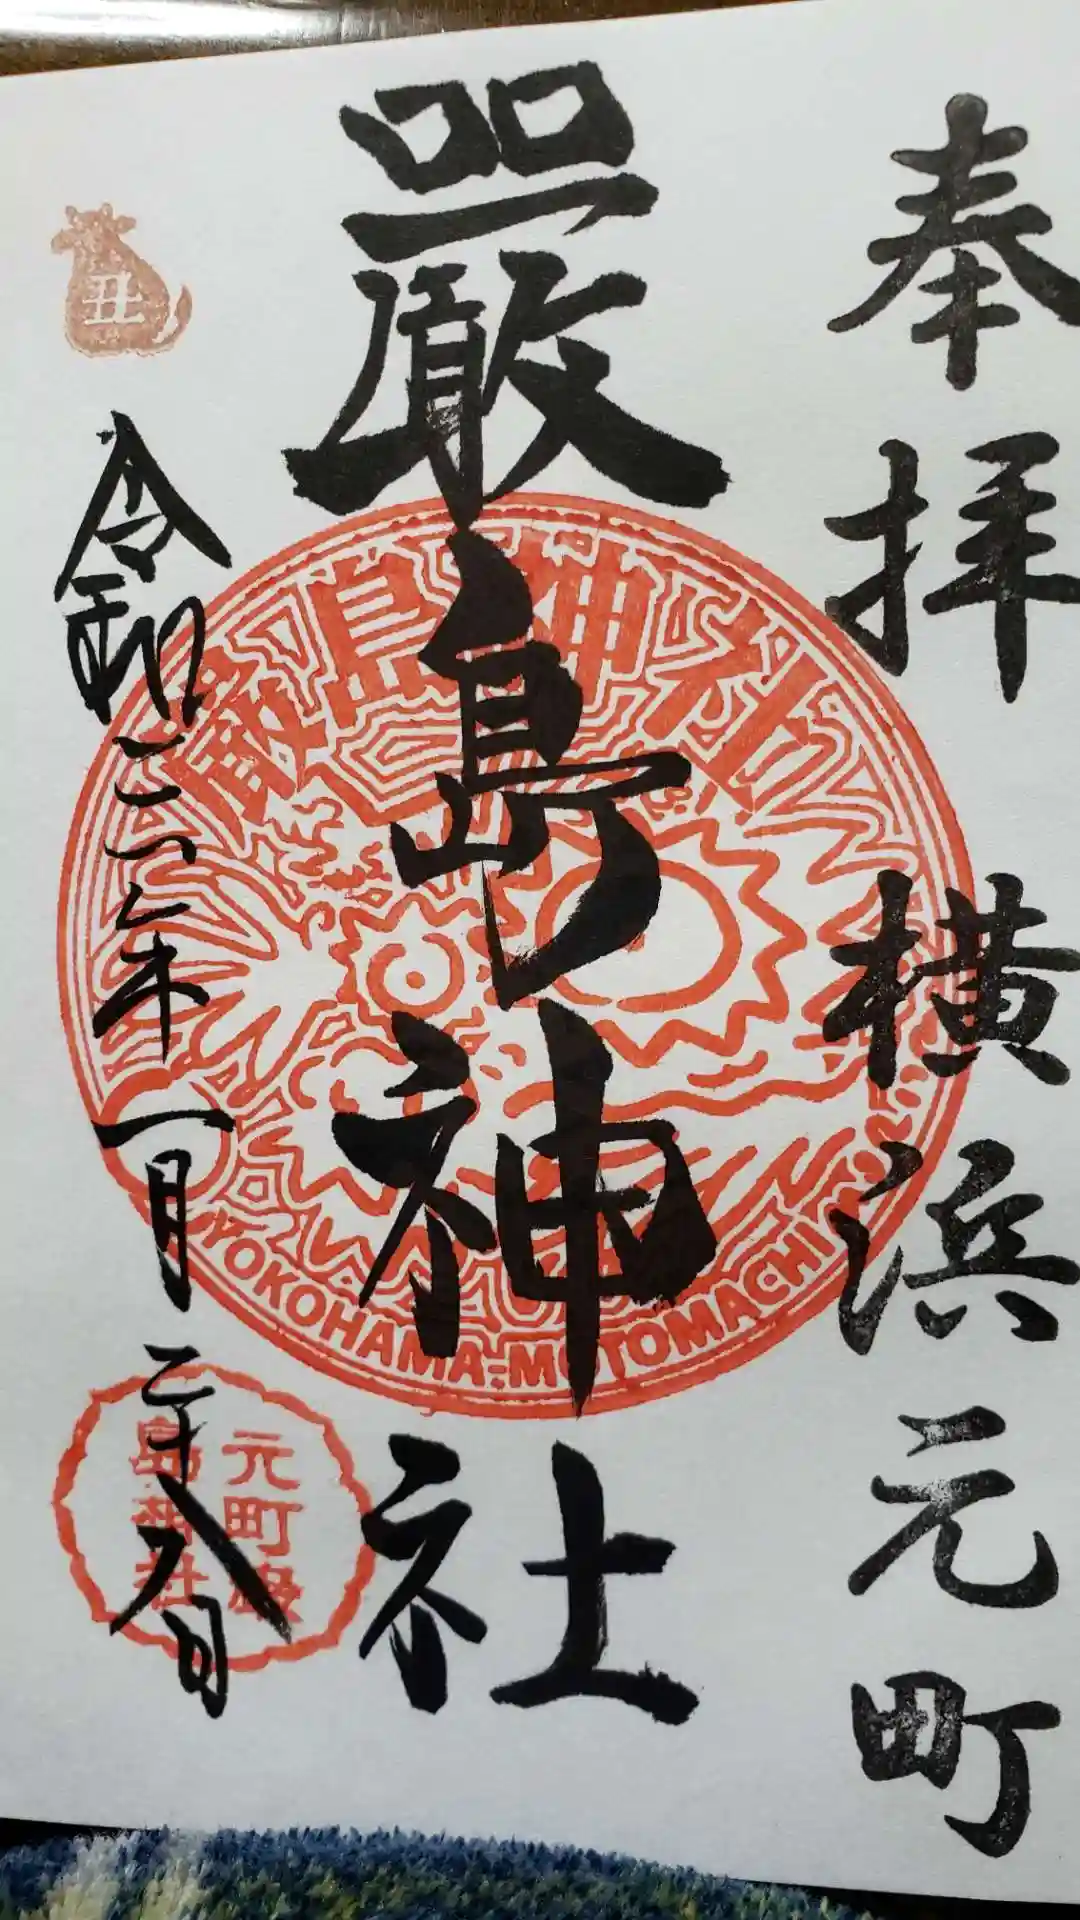 奉拝 横浜元町
厳島神社
厳島神社
YOKOHAMA-MOTOMACHI
丑
令和三年一月二十八日
元町厳
島神社